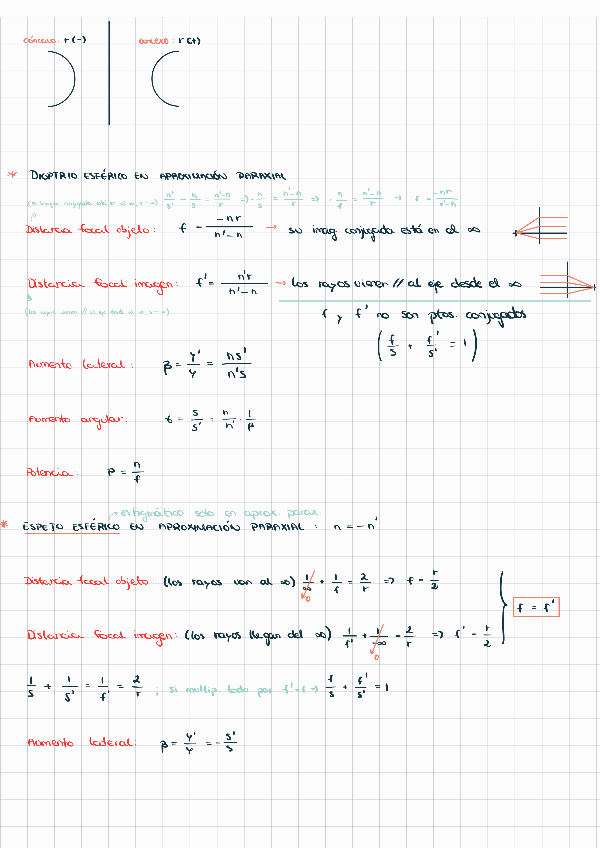 cóncavo: r(-) convexo: r(+)
* DIOPTRIO ESFÉRICO EN APROXIMACIÓN PARAXIAL
n'/s' - n/s = n'-n/r => - n/s = n'-n/r => - n/f = n'-n/r → f = -nr/n'-n
Distancia focal objeto: f = -nr/n'-n → su imag conjugada está en el ∞
Distancia focal imagen: f' = n'r/n'-n → los rayos vienen // al eje desde el ∞
f y f' no son ptos. conjugados
(f/s + f'/s' = 1)
Aumento lateral: β = y'/y = ns'/n's
Aumento angular: γ = s/s' = n/n' · 1/β
Potencia: P = n/f
→ estigmático solo en aprox. parax.
* ESPEJO ESFÉRICO EN APROXIMACIÓN PARAXIAL: n = -n'
Distancia focal objeto (los rayos van al ∞) 1/∞ →0 + 1/f = 2/r => f = r/2
f = f'
Distancia focal imagen: (los rayos llegan del ∞) 1/f' + 1/-∞ →0 = 2/r => f' = r/2
1/s + 1/s' = 1/f' = 2/r ; si multip. todo por f'=f => f/s + f'/s' = 1
Aumento lateral: β = y'/y = - s'/s